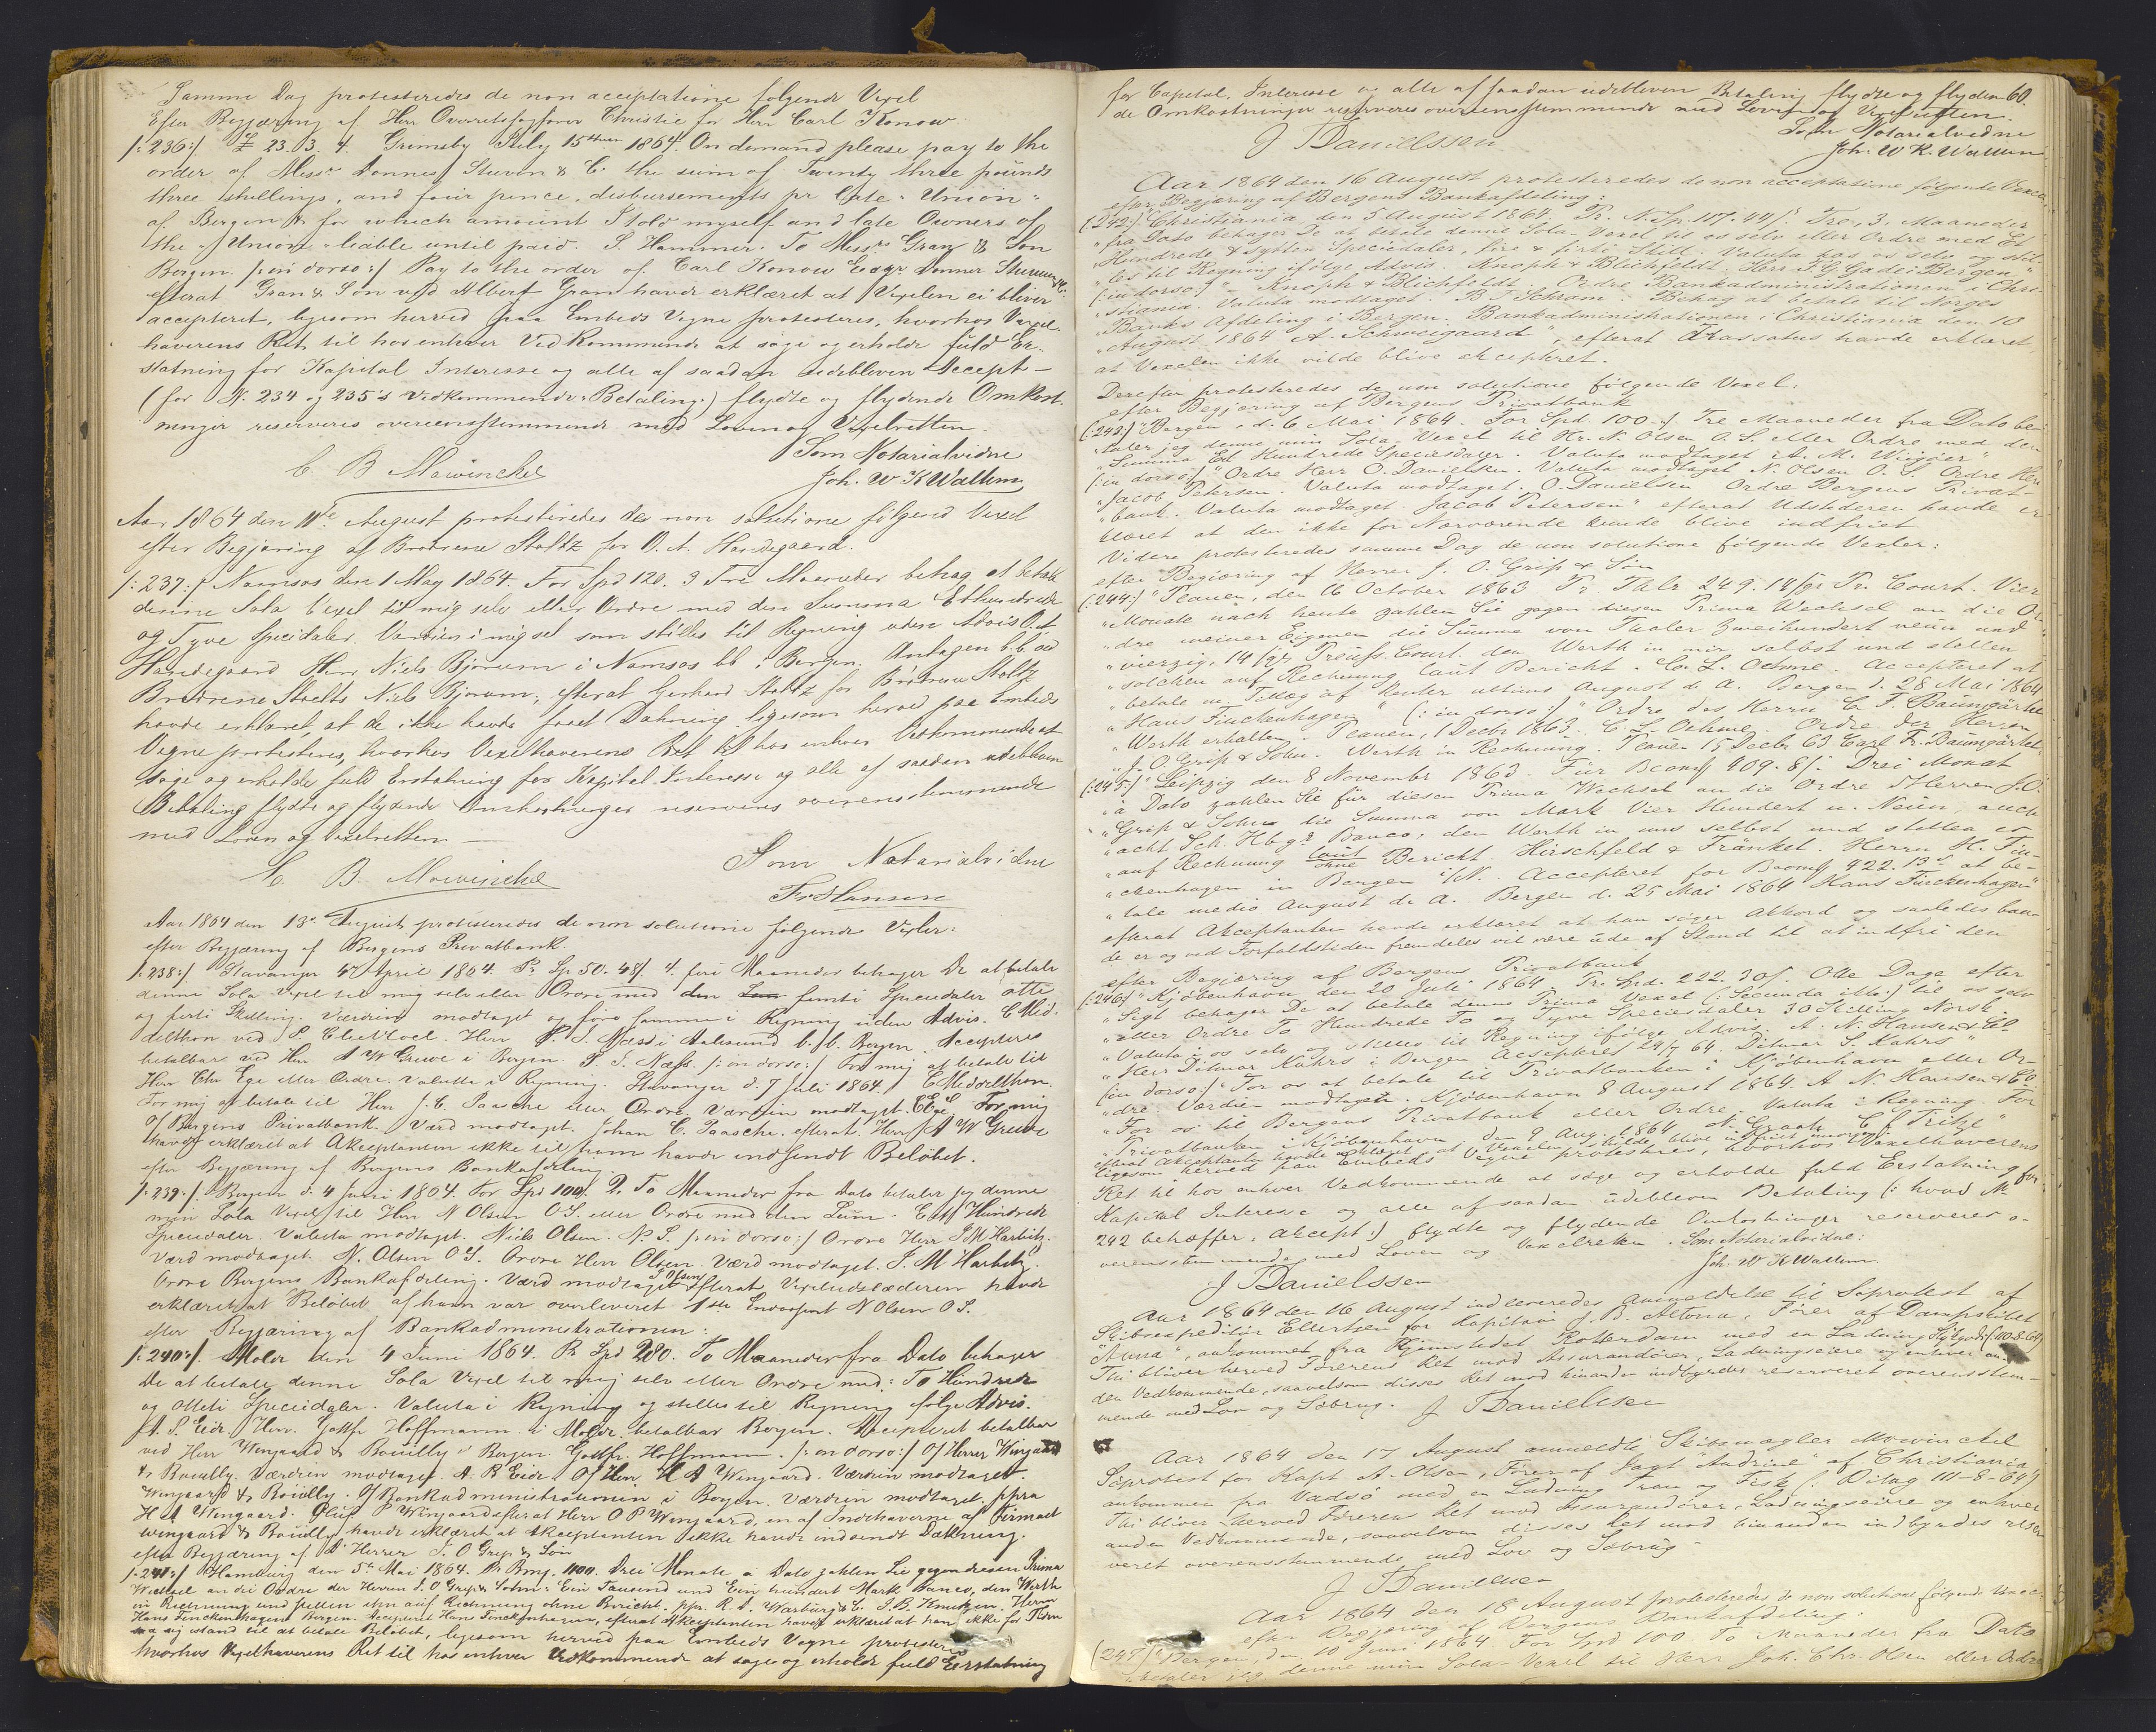 Samme Dag protesteredes de non acceptatione følgende Vexel
Efter Begjæring af Herr Overretssagfører Christie for Herr Carl Konow.
/:236:/ £ 23. 3. 4. Grimsby July 15th 1864. On demand please pay to the
order of Messrs Stuven & C. the sum of Twenty three pounds
three shillings, and four pence, disbursements pr Gale "Union"
of Bergen & for which amount I hold myself and late Owners of
the "Union" liable until paid. S. Hammer. To Messrs Gran & Son
Bergen. /:in dorso:/ Pay to the order of Carl Konow Esqr
efterat Gran & Søn ved Albert Gran havde erklæret at Vexelen ei bliver
accepteret, ligesom herved paa Embeds Vegne protesteres, hvorhos Vexel-
haverens Ret til hos enhver Vedkommende at søge og erholde fuld Er-
statning for Kapital Interesse og alle af saadan udebleven Accept-
(for N. 234 og 235's Vedkommende: Betaling.) flydte og flydende Omkost-
ninger reserveres overeensstemmende med Loven og Vexelretten.
Som Notarialvidne
C. B. Mowinckel Joh. W K Wallem
Aar 1864 den 11te August protesteredes de non solutione følgende Vexel
efter Begjæring af Brødrene Stoltz for O. A. Handegaard.
/:237:/ Namsos den 1 May 1864. For Spd 120. 3 Tre Maaneder behag at betale
denne Sola Vexel til mig selv eller Ordre med den Summa Ethundrede
og Tyve Speciedaler. Værdien i mig selv som stilles til Regning uden Advis O. A.
Handegaard Herr Niels Bjørum i Namsos bb i Bergen. Antagen b.b. ved
Brødrene Stoltz Niels Bjørum; efterat Gerhard Stoltz for Brødrene Stoltz
havde erklæret, at de ikke havde faaet Dækning ligesom herved paa Embeds
Vegne protesteres, hvorhos Vexelhaverens Ret til hos enhver Vedkommende at
søge og erholde fuld Erstatning for Kapital Interesse og alle af saadan udebleven
Betaling flydte og flydende Omkostninger reserveres overensstemmende
med Loven og Vexelretten. —
Som Notarialvidne
C. B. Mowinckel Fr. Hansen
Aar 1864 den 13de August protesteredes de non solutione følgende Vexler:
efter Begjæring af Bergens Privatbank.
/:238:/ Stavanger 4 April 1864. Pr Sp. 50. 48/. 4. fire Maaneder behager De at betale
denne Sola Vexel til mig selv eller Ordre med den femti Speciedaler otte
og førti Skilling. Værdien modtaget og føre Samme i Regning uden Advis. E Mid-
delthon. Herr P. S. Næss i Aalesund b./b. Bergen. Accepteres
betalbar ved Herr A W Greve i Bergen. P. S. Næss. /:in dorso:/ For mig at betale til
Herr Chr Ege eller Ordre. Valutta i Regning. Stavanger d. 7 Juli 1864. E Middelthon.
For mig at betale til Herr J. C. Paasche eller Ordre. Værdien modtaget. C Ege. For mig
til Bergens Privatbank. Værd modtaget. Johan C. Paasche. efterat Herr A W Greve
havde erklæret at Akceptanten ikke til ham havde indsendt Beløbet.
efter Begjæring af Bergens Bankafdeling.
/:239:/ Bergen d. 4 Juni 1864. For Spd 100/. 2. To Maaneder fra Dato betaler jeg denne
min Sola Vexel til Herr N Olsen O.S. eller Ordre med den Sum. Et Hundrede
Speciedaler. Valuta modtaget. Niels Olsen. N. S. /:in dorso:/ Ordre Herr J M Harbitz.
Værd modtaget. N. Olsen O S. Ordre Herr Olsen. Værd modtaget. J. M Harbitz.
Ordre Bergens Bankafdeling. Værd modtaget. J Olsen efterat Vexeludstederen havde
erklæret at Beløbet af ham var overleveret 1ste Endossent N Olsen O S.
efter Begjæring af Bankadministrationen:
/:240:/. Molde den 4 Juni 1864. Pr Spd 280. To Maaneder fra Dato behager
De at betale denne Sola Vexel til mig selv eller Ordre med: To Hundrede
og Otteti Speciedaler. Valuta i Regning og stilles til Regning ifølge Advis.
A. S. Eide. Herr. Gottfr Hoffmann i Molde. betalbar Bergen. Accepteret betalbar
ved Herr Wingaard & Bouilly i Bergen. Gottfr. Hoffmann. /:in dorso:/ Til Herrer Wingaard
& Bouilly. Værdien modtaget. A. B Eide. Til Herr H A Wingaard. Værdien modtaget.
Wingaard & Bouilly. Til Bankadministrationen i Bergen. Værdien modtaget. ppra
H A Wingaard. Oluf P Wingaard efterat Herr O P Wingaard, en af Indehaverne af Firmaet
Wingaard & Bouilly havde erklæret at Akceptanten ikke havde indsendt Dækning.
efter Begjæring af D'Herrer J. O Grip & Søn
/:241:/ Hamburg den 5te Mai 1864. Pr Bmg. 1100. Drei Monate a Dato zahlen Sie gegen diesen Prima
Wechsel an die Ordre der Herren J. O Grip & Sohn: Ein Tausend und Ein hundert Mark Banco, den Werth
in Rechnung und stellen ihn auf Rechnung ohne Bericht. ppr. R. D. Warburg & C. J. B. Knudzon. Herrn
Hans Finckenhagen Bergen. Accepteret Hans Finckenhagen, efterat Akceptanten havde erklæret at han ikke for Tiden
saa sig istand til at betale Beløbet, ligesom herved paa Embeds Vegne protesteres
hvorhos Vexelhaverens Ret til hos enhver Vedkommende at søge og erholde fuld Erstatning
for Capital, Interesse og alle af saadan udebleven Betaling flydte og flyden 60.
de Omkostninger reserveres overeensstemmende med Loven og Vexelretten.
Som Notarialvidne
J Danielssen Joh. W K. Wallem
Aar 1864 den 16 August protesteredes de non acceptatione følgende Vexel
efter Begjæring af Bergens Bankafdeling:
(:242:) "Christiania den 5 August 1864. Pr. N. Sp. 117. 44/. Tre, 3, Maaneder
"fra Dato behager De at betale denne Sola-Vexel til os selv eller Ordre med Et
"Hundrede & sytten Speciedaler, fire & firti Skill. Valuta hos os selv og stil-
"les til Regning ifølge Advis. Knoph & Blichfeldt. Herr F. G. Gade i Bergen"
(:in dorso:) "Knoph & Blichfeldt. Ordre Bankadministrationen i Chri-
"stiania. Valuta modtaget. B. Schram. Behag at betale til Norges
"Banks Afdeling i Bergen. Bankadministrationen i Christiania den 10
"August 1864 A. Schweigaard", efterat Trassatus havde erklæret
at Vexelen ikke vilde blive akcepteret.
Derefter protesteredes de non solutione følgende Vexel.
efter Begjæring af Bergens Privatbank
(:243:) "Bergen, d. 6 Mai 1864. For Spd. 100:/. Tre Maaneder fra Dato be-
"taler jeg denne min Sola-Vexel til Hr. N. Olsen O. S. eller Ordre med den
"Summa Et Hundrede Speciesdaler. Valuta modtaget A. M. Wingöer"
(:in dorso:) "Ordre Herr O. Danielsen. Valuta modtaget N. Olsen O. S. Ordre Herr
"Jacob Petersen. Valuta modtaget. O. Danielsen Ordre Bergens Privat-
"bank. Valuta modtaget. Jacob Petersen" efterat Udstederen havde er-
klæret at den ikke for Nærværende kunde blive indfriet
Videre protesteredes samme Dag de non solutione følgende Vexler:
efter Begjæring af Herrer J. O. Grip & Søn
(:244:) "Plauen, den 16 October 1863 Pr. Thlr 249. 14/gr Pr. Court. Vier
"Monate nach heute zahlen Sie gegen diesen Prima Wechsel an die Or-
"dre meiner Eigenen die Summe von Thaler Zweihundert neun und
"vierzig, 14/gr. Preuss. Court. den Werth in mir selbst und stellen
"solchen auf Rechnung laut Bericht. C. L. Oehme. Accepteret at
"betale m. Tillæg af Renter ultimo August d. A. Bergen d. 28 Mai 1864
"Hans Finckenhagen" (:in dorso:) "Ordre des Herrn C. F. Baumgärtel
"Werth erhalten. Plauen, 1 Decbr 1863. C. L. Oehme. Ordre der Herren
"J. O. Grip & Sohn. Werth in Rechnung. Plauen 15 Decbr 63 Carl Fr. Baumgärtel.
(:245:) "Leipzig den 8 November 1863. Für Bcomk 409. 8/. Drei Monat
"a Dato zahlen Sie für diesen Prima Wechsel an die Ordre Herren J. O.
"Grip & Sohn die Summa von Mark Vier Hundert u. Neün, auch
"acht Sch. Hbgr Banco, den Werth in uns selbst und stellen es
"auf Rechnung laut ohne Bericht. Hirschfeld & Fränkel. Herrn H. Fin-
"ckenhagen in Bergen i/N. Accepteret for Bcomk 422. 13s at be-
"tale medio August d. A. Bergen d. 25 Mai 1864 Hans Finckenhagen"
efterat Akceptanten havde erklæret at han søger Akkord og saaledes baa-
de er og ved Forfaldstiden fremdeles vil være ude af Stand til at indfri den
efter Begjæring af Bergens Privatbank
(:246:) "Kjøbenhavn den 20 Juli 1864 Pr. Spd. 222. 30/. Otte Dage efter
"Sigt behager De at betale denne Prima Vexel (:Secunda ikke:) til os selv
"eller Ordre To Hundrede To og Tyve Speciesdaler 30 Skilling Norsk.
"Valuta i os selv og stilles til Regning ifølge Advis. A. N. Hansen & Co
"Herr Ditmar Kahrs i Bergen Accepteret 29/7 64. Ditmar S. Kahrs"
(:in dorso:) "For os at betale til Privatbanken i Kjøbenhavn eller Or-
"dre. Værdien modtaget. Kjøbenhavn 8 August 1864. A. N. Hansen & Co
"For os til Bergens Privatbank eller Ordre. Valuta i Regning. For
"Privatbanken i Kjøbenhavn den 9 Aug. 1864 C. F. Tritze"
efterat Akceptanten havde erklæret at Vexelen skulde blive indfriet imorgen,
ligesom herved paa Embeds Vegne protesteres, hvorhos Vexelhaverens
Ret til hos enhver Vedkommende at søge og erholde fuld Erstatning for
Kapital Interesse og alle af saadan udebleven Betaling (: hvad No
242 betræffer: Akcept:) flydte og flydende Omkostninger reserveres o-
verensstemmende med Loven og Vexelretten. Som Notarialvidne:
J Danielssen Joh. W K Wallem.
Aar 1864 den 16 August indleveredes Anmeldelse til Søprotest af
Skibsexpeditør Ellertsen for Kapitain J. B. Altona, Fører af Dampskibet
"Anna", ankommen fra Hjemstedet Rotterdam med en Ladning Stykgods (:20-8-64)
Thi bliver herved Førerens Ret mod Assurandører, Ladningseiere og enhver an-
den Vedkommende, saavelsom disses Ret mod hinanden indbyrdes reserveret overensstem-
mende med Lov og Søbrug. J Danielssen
Aar 1864 den 17 August anmeldte Skibsmægler Mowinckel
Søprotest for Kapt A. Olsen, Fører af Jagt "Andrine" af Christiania
ankommen fra Vadsø med en Ladning Tran og Fisk (:Dilag 111-8-64)
Thi bliver herved Førerens Ret mod Assurandører, Ladningseiere og enhver
anden Vedkommende, saavelsom disses Ret mod hinanden indbyrdes reser-
veret overensstemmende med Lov og Søbrug -
J Danielssen
Aar 1864 den 18 August protesteredes de non solutione følgende Vexel
efter Begjæring af Bergens Bankafdeling.
(:247:) "Bergen, den 10 Juni 1864 For Spd 100 To Maaneder fra Dato
"betaler jeg denne min Sola-Vexel til Herr Joh. Chr. Olsen eller Ordre